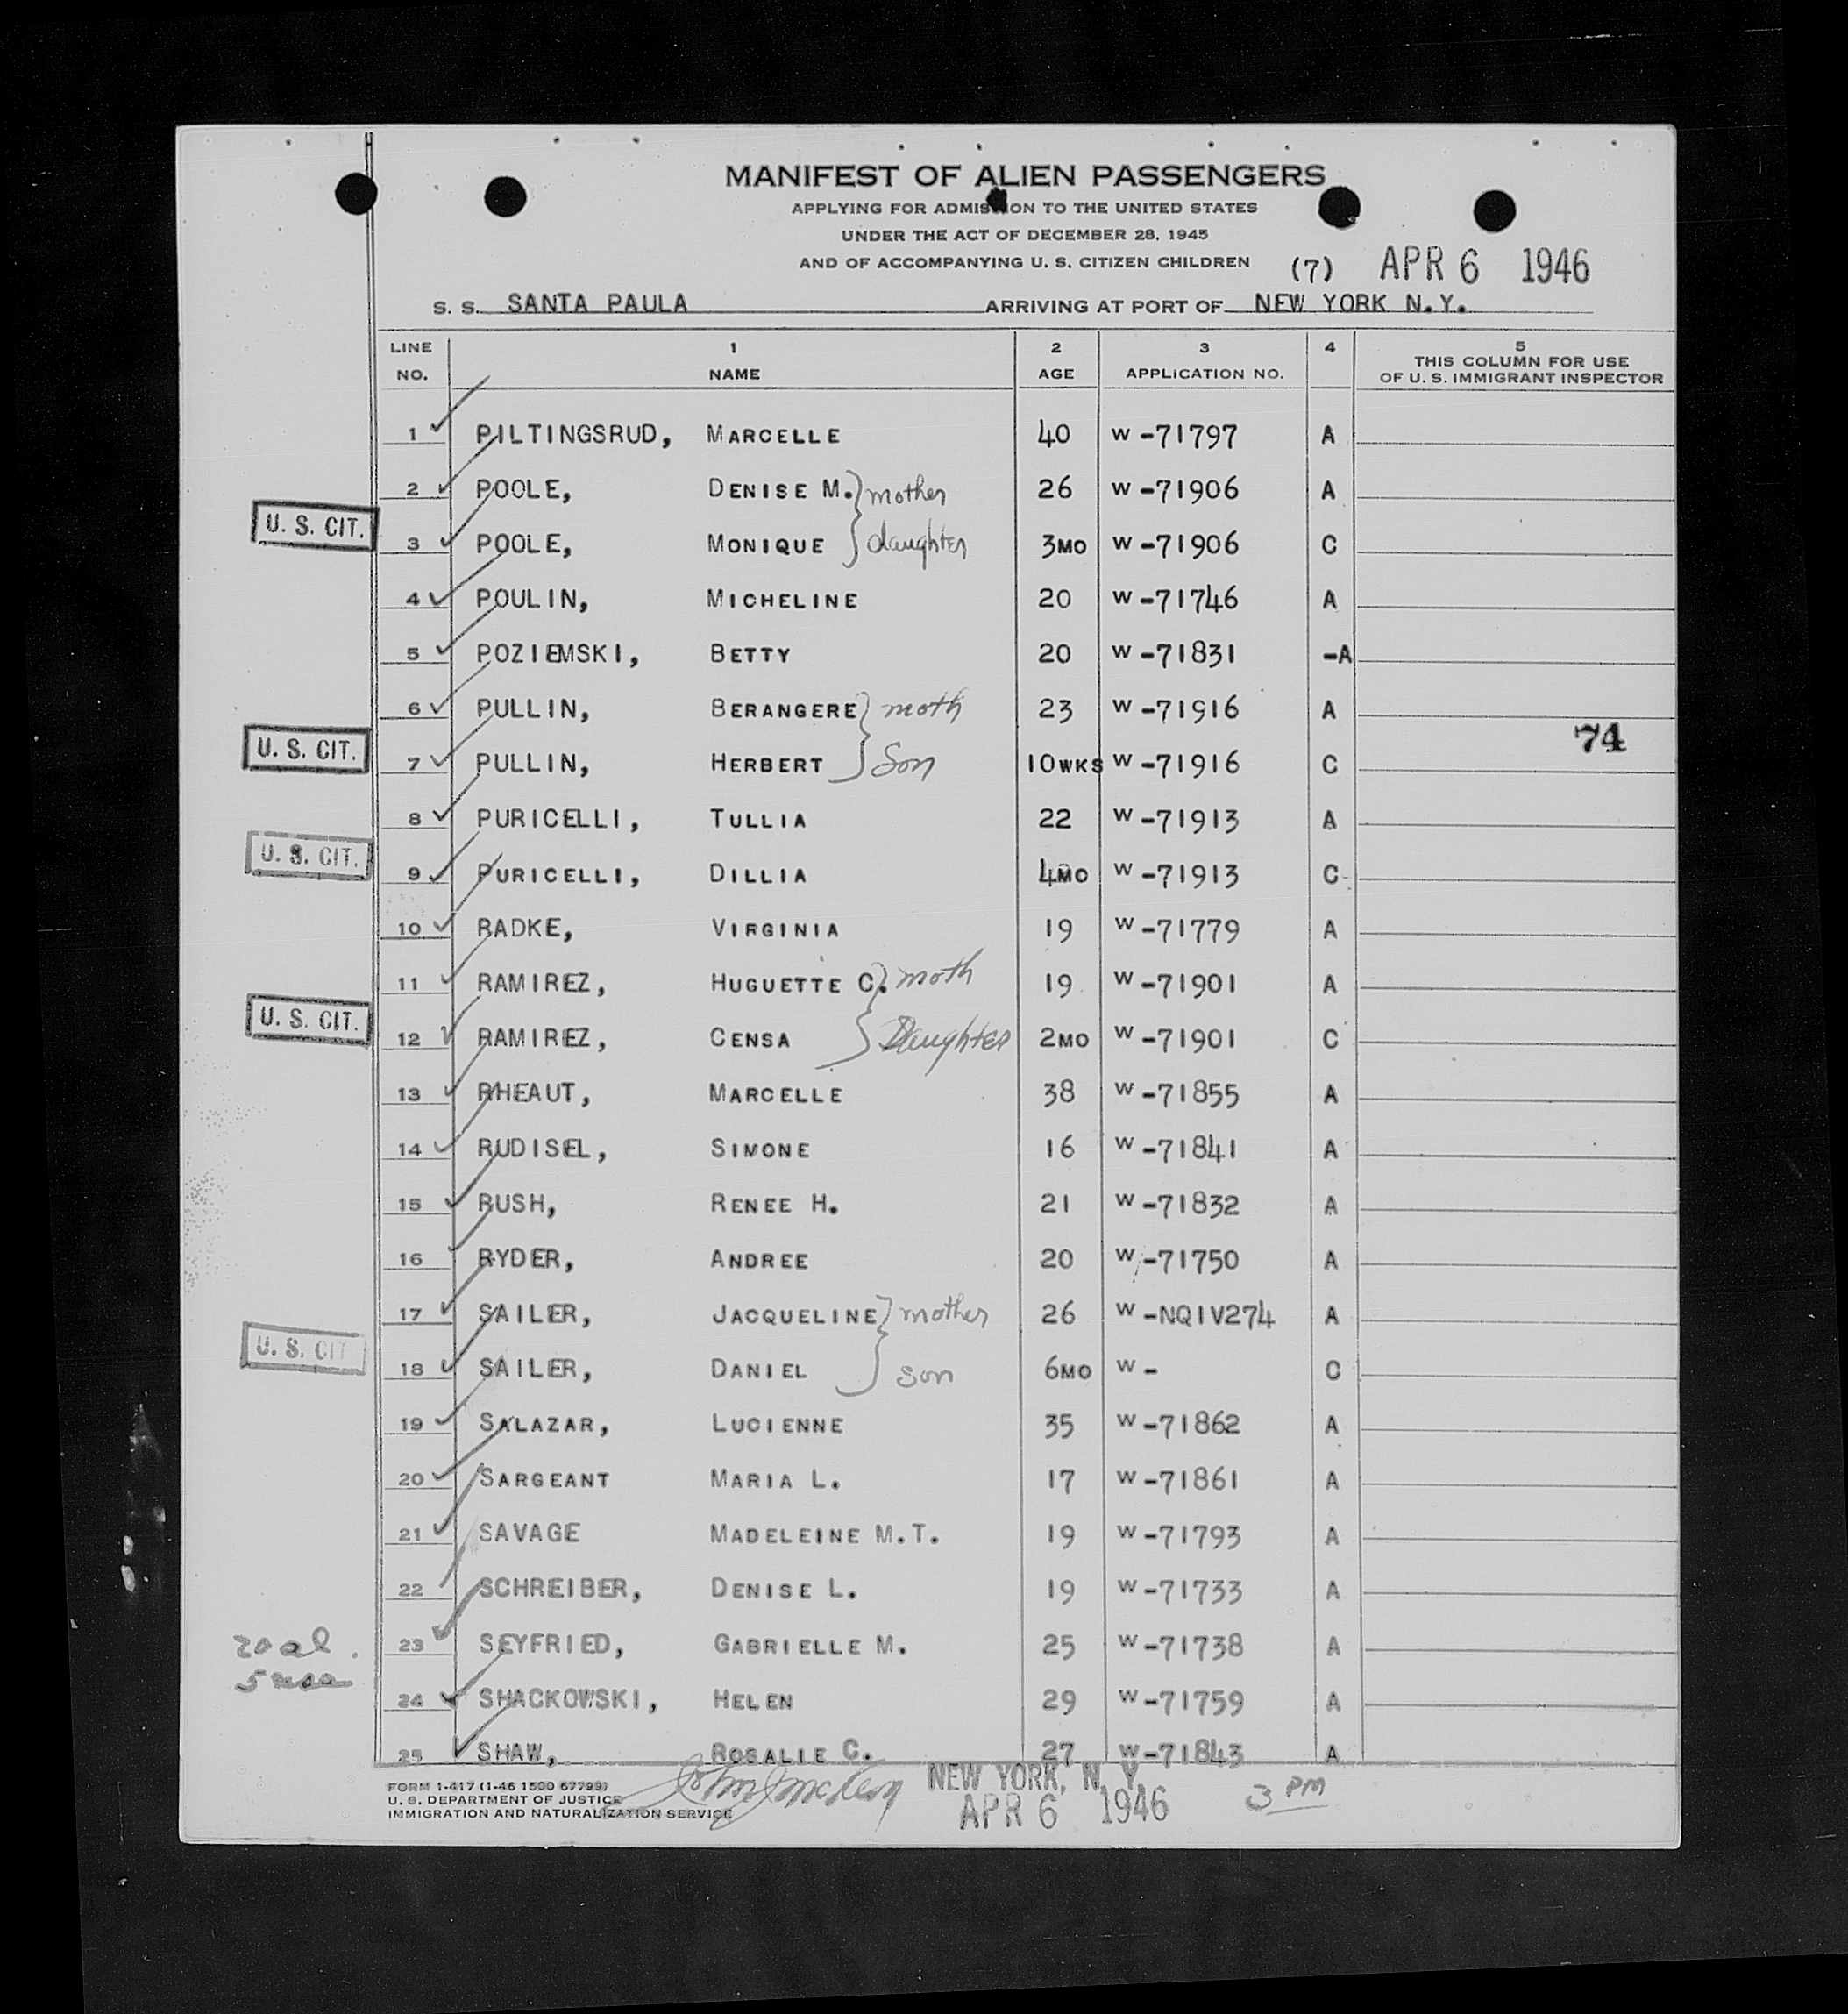 MANIFEST OF ALIEN PASSENGERS
APPLYING FOR ADMISSION TO THE UNITED STATES
UNDER THE ACT OF DECEMBER 28, 1945
AND OF ACCOMPANYING U. S. CITIZEN CHILDREN (7) APR 6 1946
S. S. SANTA PAULA ARRIVING AT PORT OF NEW YORK N.Y.
LINE NO. 1 NAME 2 AGE 3 APPLICATION NO. 4 5 THIS COLUMN FOR USE OF U. S. IMMIGRANT INSPECTOR
1 PILTINGSRUD, MARCELLE 40 W-71797 A
2 POOLE, DENISE M. mother 26 W-71906 A
U. S. CIT. 3 POOLE, MONIQUE daughter 3MO W-71906 C
4 POULIN, MICHELINE 20 W-71746 A
5 POZIEMSKI, BETTY 20 W-71831 -A
6 PULLIN, BERANGERE moth 23 W-71916 A
74
U. S. CIT. 7 PULLIN, HERBERT Son 10WKS W-71916 C
8 PURICELLI, TULLIA 22 W-71913 A
U. S. CIT. 9 PURICELLI, DILLIA 4MO W-71913 C
10 RADKE, VIRGINIA 19 W-71779 A
11 RAMIREZ, HUGUETTE C. moth 19 W-71901 A
U. S. CIT. 12 RAMIREZ, CENSA Daughter 2MO W-71901 C
13 RHEAUT, MARCELLE 38 W-71855 A
14 RUDISEL, SIMONE 16 W-71841 A
15 RUSH, RENEE H. 21 W-71832 A
16 RYDER, ANDREE 20 W-71750 A
17 SAILER, JACQUELINE mother 26 W-NQIV274 A
U. S. CIT 18 SAILER, DANIEL son 6MO W- C
19 SALAZAR, LUCIENNE 35 W-71862 A
20 SARGEANT MARIA L. 17 W-71861 A
21 SAVAGE MADELEINE M.T. 19 W-71793 A
22 SCHREIBER, DENISE L. 19 W-71733 A
20 al. 23 SEYFRIED, GABRIELLE M. 25 W-71738 A
24 SHACKOWSKI, HELEN 29 W-71759 A
25 SHAW, ROSALIE C. 27 W-71843 A
FORM I-417 (1-46 1500 67799)
U. S. DEPARTMENT OF JUSTICE
IMMIGRATION AND NATURALIZATION SERVICE
NEW YORK, N. Y.
APR 6 1946 3 PM